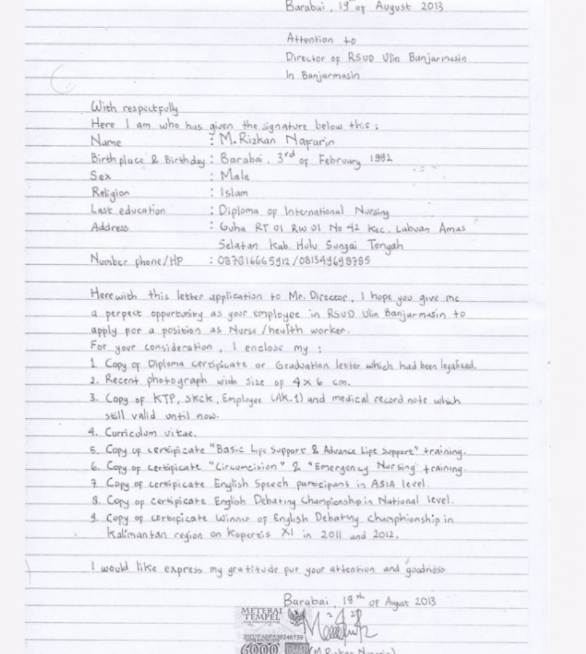 Barabai, 19th of August 2013
Attention to
Director of RSUD Ulin Banjarmasin
In Banjarmasin
With respectfully
Here I am who has given the signature below this :
Name : M. Rizkan Naparin
Birthplace & Birthday : Barabai, 3rd of February 1992
Sex : Male
Religion : Islam
Last education : Diploma of International Nursing
Address : Guha RT 01 RW 01 No 42 Kec. Labuan Amas
Selatan Kab. Hulu Sungai Tengah
Number phone/HP : 087816665912 / 081349698785
Herewith this letter application to Mr. Director, I hope you give me
a perpect opportunity as your employee in RSUD Ulin Banjarmasin to
apply for a position as Nurse / health worker.
For your consideration, I enclose my :
1. Copy of Diploma certipicate or Graduation letter which had been legalized.
2. Recent photograph with size of 4 x 6 cm.
3. Copy of KTP, SKCK, Employee (AK.1) and medical record note which
still valid until now.
4. Curriculum vitae.
5. Copy of certipicate "Basic Lipe Support & Advance Lipe Support" training.
6. Copy of certipicate "Circumcision" & "Emergency Nursing" training.
7. Copy of certipicate English Speech participant in ASIA level.
8. Copy of certipicate English Debating Championship in National level.
9. Copy of certipicate Winner of English Debating Champhionship in
Kalimantan region on Kopertis XI in 2011 and 2012.
I would like express my gratitude por your attention and goodness
Barabai, 19th of August 2013
METERAI
TEMPEL
6000